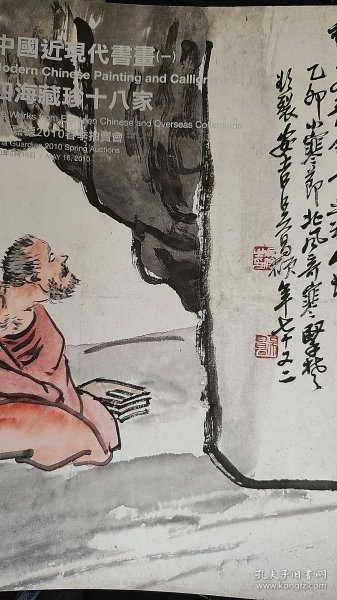 中國近現代書畫(一)
Modern Chinese Painting and Callig
四海藏珍十八家
Works from Eighteen Chinese and Overseas Collections
2010春季拍賣會
Guardian 2010 Spring Auctions
年5月16日 / MAY 16, 2010
乙卯小寒節北風奇寒
裂安吉吳昌碩年七十又二
孔夫子旧书网